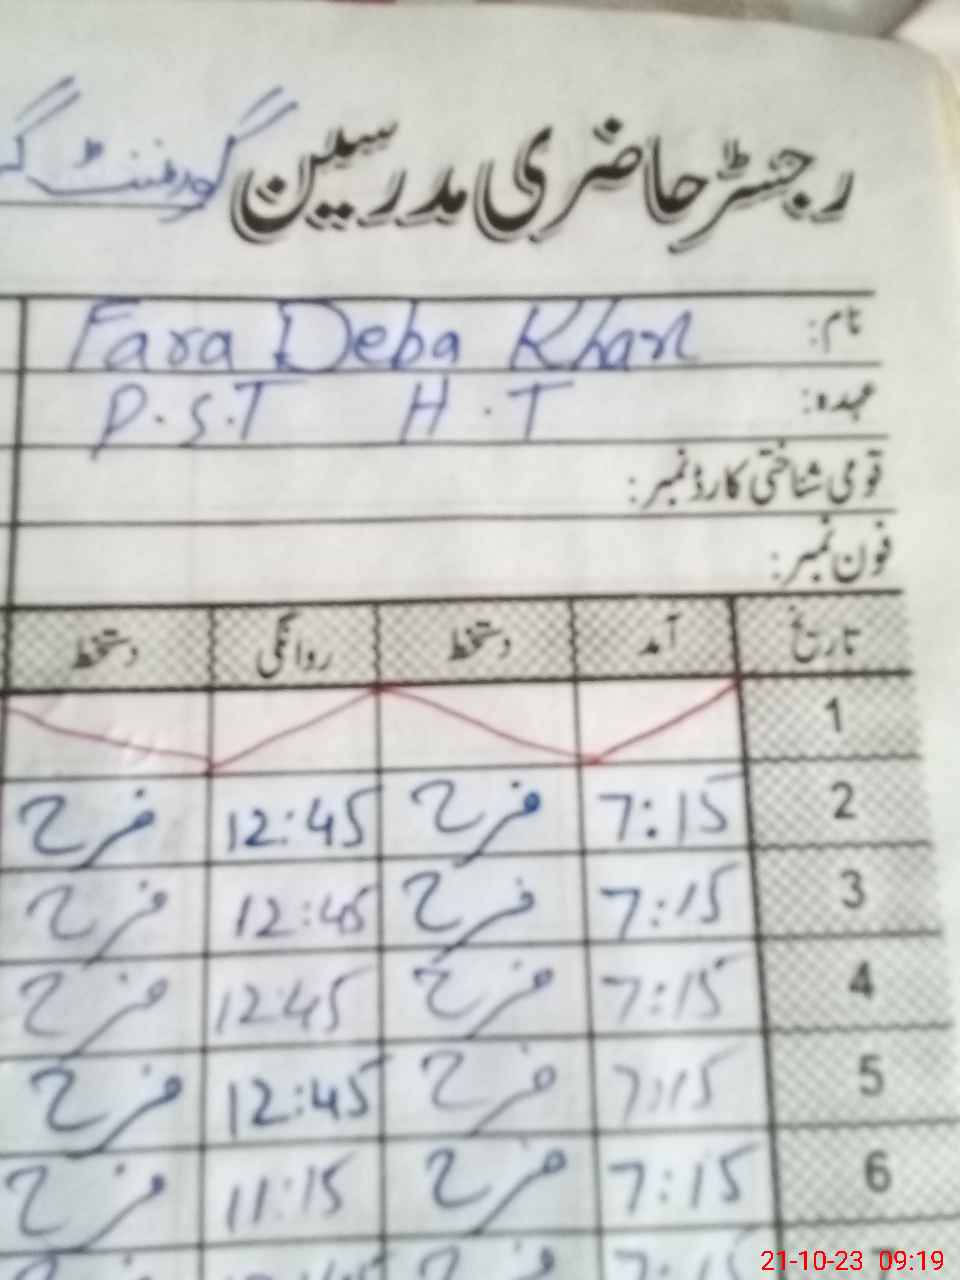 رجسٹر حاضری مدرسین گورنمنٹ گ
نام: Fara Deba Khan
عہدہ: P.S.T H.T
قومی شناختی کارڈ نمبر:
فون نمبر:
تاریخ آمد دستخط روانگی دستخط
1
2 7:15 فرح 12:45 فرح
3 7:15 فرح 12:45 فرح
4 7:15 فرح 12:45 فرح
5 7:15 فرح 12:45 فرح
6 7:15 فرح 11:15 فرح
21-10-23 09:19